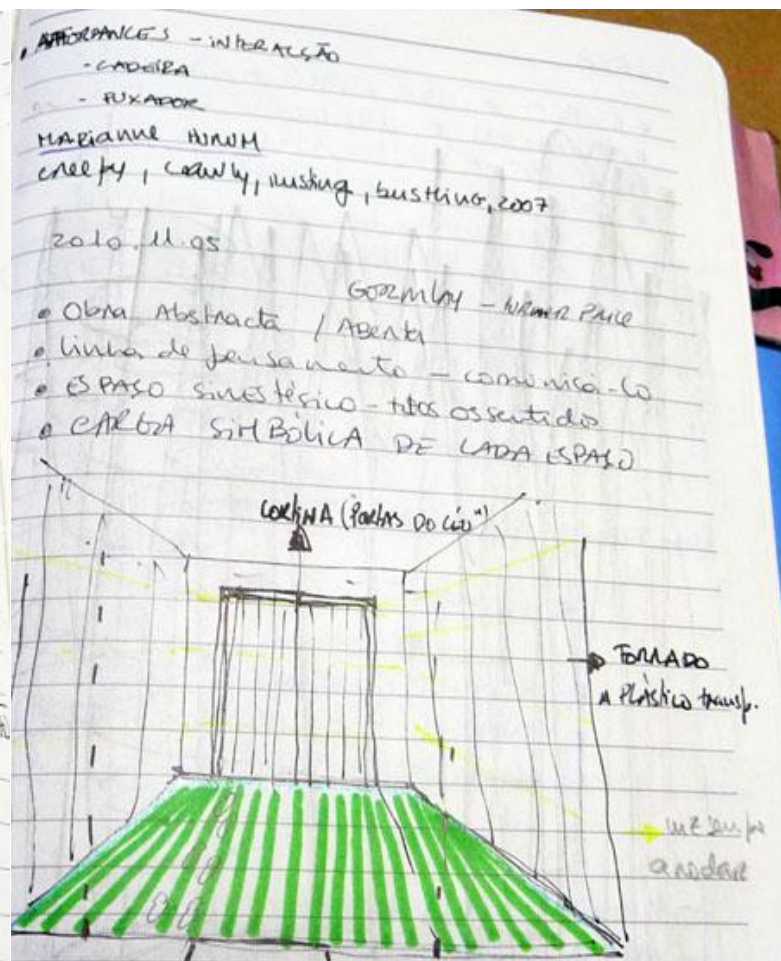 • AFFORDANCES - INTERACÇÃO
- CADEIRA
- PUXADOR
MARIANNE
creepy, crawly, bustling, 2007
2010.11.05
GORMLEY -
• Obra Abstracta / ABERTA
• Linha de pensamento - comunicá-lo
• ESPAÇO SINESTÉSICO - sentido
• CARGA SIMBÓLICA DE CADA ESPAÇO
CORTINA ("PORTAS DO CÉU")
FORRADO
A PLÁSTICO transp.